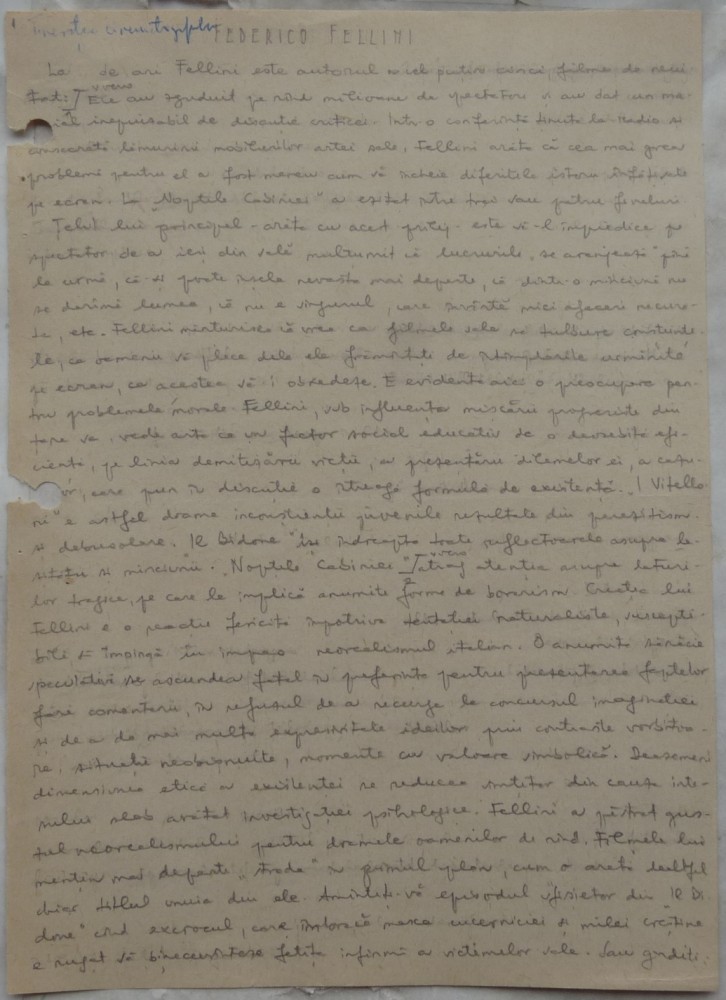 FEDERICO FELLINI
La de ani Fellini este autorul a cel puțin cinci filme de neui-
tat: Ele au zguduit pe rînd milioane de spectatori și au dat un ma-
inepuizabil de discuție criticei. Într-o conferință ținută la radio și
consacrată lămuririi mobilurilor artei sale, Fellini arăta că cea mai grea
problemă pentru el a fost mereu cum să încheie diferitele istorii înfățișate
pe ecran. La "Nopțile Cabiriei" a ezitat între trei sau patru finaluri
Țelul lui principal - arăta cu acest prilej - este să-l împiedice pe
spectator de a ieși din sală mulțumit că lucrurile "se aranjează" pînă
la urmă, că-și poate înșela nevasta mai departe, că dintr-o minciună nu
se dărîmă lumea, că nu e singurul, care învîrtă mici afaceri necura-
te, etc. Fellini mărturisește că vrea ca filmele sale să tulbure conștiințe-
le, ca oamenii să plece dela ele frămîntați de întîmplările urmărite
pe ecran, ca acestea să-i obsedeze. E evidentă aici o preocupare pen-
tru problemele morale. Fellini, sub influența mișcării progresiste din
țara sa, vede arta ca un factor social educativ de o deosebită efi-
ciență, pe linia demitizării vieții, a prezentării dilemelor ei, a cazu-
or, care pun în discuție o întreagă formulă de existență. "I Vitello-
ni" e astfel drama inconștienței juvenile rezultate din parazitism
și debusolare. "Il Bidone" își îndreaptă toate reflectoarele asupra la-
șității și minciunii. "Nopțile Cabiriei" atrag atenția asupra laturi-
lor tragice, pe care le implică anumite forme de bovarism. Creația lui
Fellini e o reacție fericită împotriva tentației naturaliste, suscepti-
bile să împingă în impas neorealismul italian. O anumită sărăcie
speculativă se ascundea fatal în preferința pentru prezentarea faptelor
fără comentarii, în refuzul de a recurge la concursul imaginației
și de a da mai multă expresivitate ideilor prin contraste vorbitoa-
re, situații neobișnuite, momente cu valoare simbolică. Deasemeni
dimensiunea etică a existenței se reducea simțitor din cauza inte-
resului slab arătat investigației psihologice. Fellini a păstrat gus-
tul neorealismului pentru dramele oamenilor de rînd. Filmele lui
mențin mai departe "strada" în primul plan, cum o arată dealtfel
chiar titlul unuia din ele. Amintiți-vă episodul sfîșietor din "Il Bi-
done" cînd excrocul, care îmbracă masca cucerniciei și milei creștine
e rugat să binecuvînteze fetița infirmă a victimelor sale. Sau gîndiți-